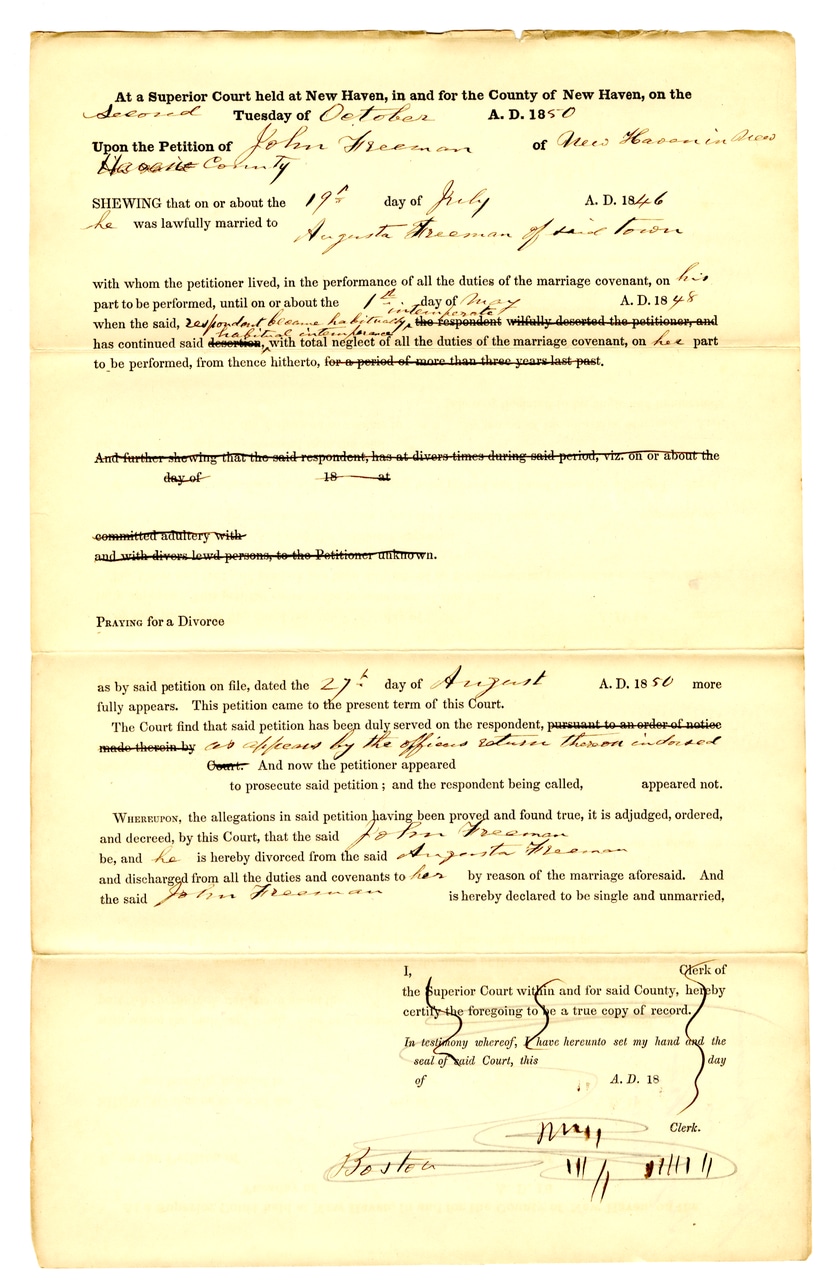 At a Superior Court held at New Haven, in and for the County of New Haven, on the
second Tuesday of October A. D. 1850
Upon the Petition of John Freeman of New Haven in New
Haven County
SHEWING that on or about the 19th day of July A. D. 1846
he was lawfully married to
Augusta Freeman of said town
with whom the petitioner lived, in the performance of all the duties of the marriage covenant, on his
part to be performed, until on or about the 1st day of May A. D. 1848
intemperate
when the said, respondent became habitually the respondent wilfully deserted the petitioner, and
habitual intemperance
has continued said desertion, with total neglect of all the duties of the marriage covenant, on her part
to be performed, from thence hitherto, for a period of more than three years last past.
And further shewing that the said respondent, has at divers times during said period, viz. on or about the
day of 18 at
committed adultery with
and with divers lewd persons, to the Petitioner unknown.
PRAYING for a Divorce
as by said petition on file, dated the 27th day of August A. D. 1850 more
fully appears. This petition came to the present term of this Court.
The Court find that said petition has been duly served on the respondent, pursuant to an order of notice
made therein by as appears by the officers return thereon indorsed
Court. And now the petitioner appeared
to prosecute said petition; and the respondent being called, appeared not.
WHEREUPON, the allegations in said petition having been proved and found true, it is adjudged, ordered,
and decreed, by this Court, that the said John Freeman
be, and he is hereby divorced from the said Augusta Freeman
and discharged from all the duties and covenants to her by reason of the marriage aforesaid. And
the said John Freeman is hereby declared to be single and unmarried,
I, Clerk of
the Superior Court within and for said County, hereby
certify the foregoing to be a true copy of record.
In testimony whereof, I have hereunto set my hand and the
seal of said Court, this day
of A. D. 18
Clerk.
Boston